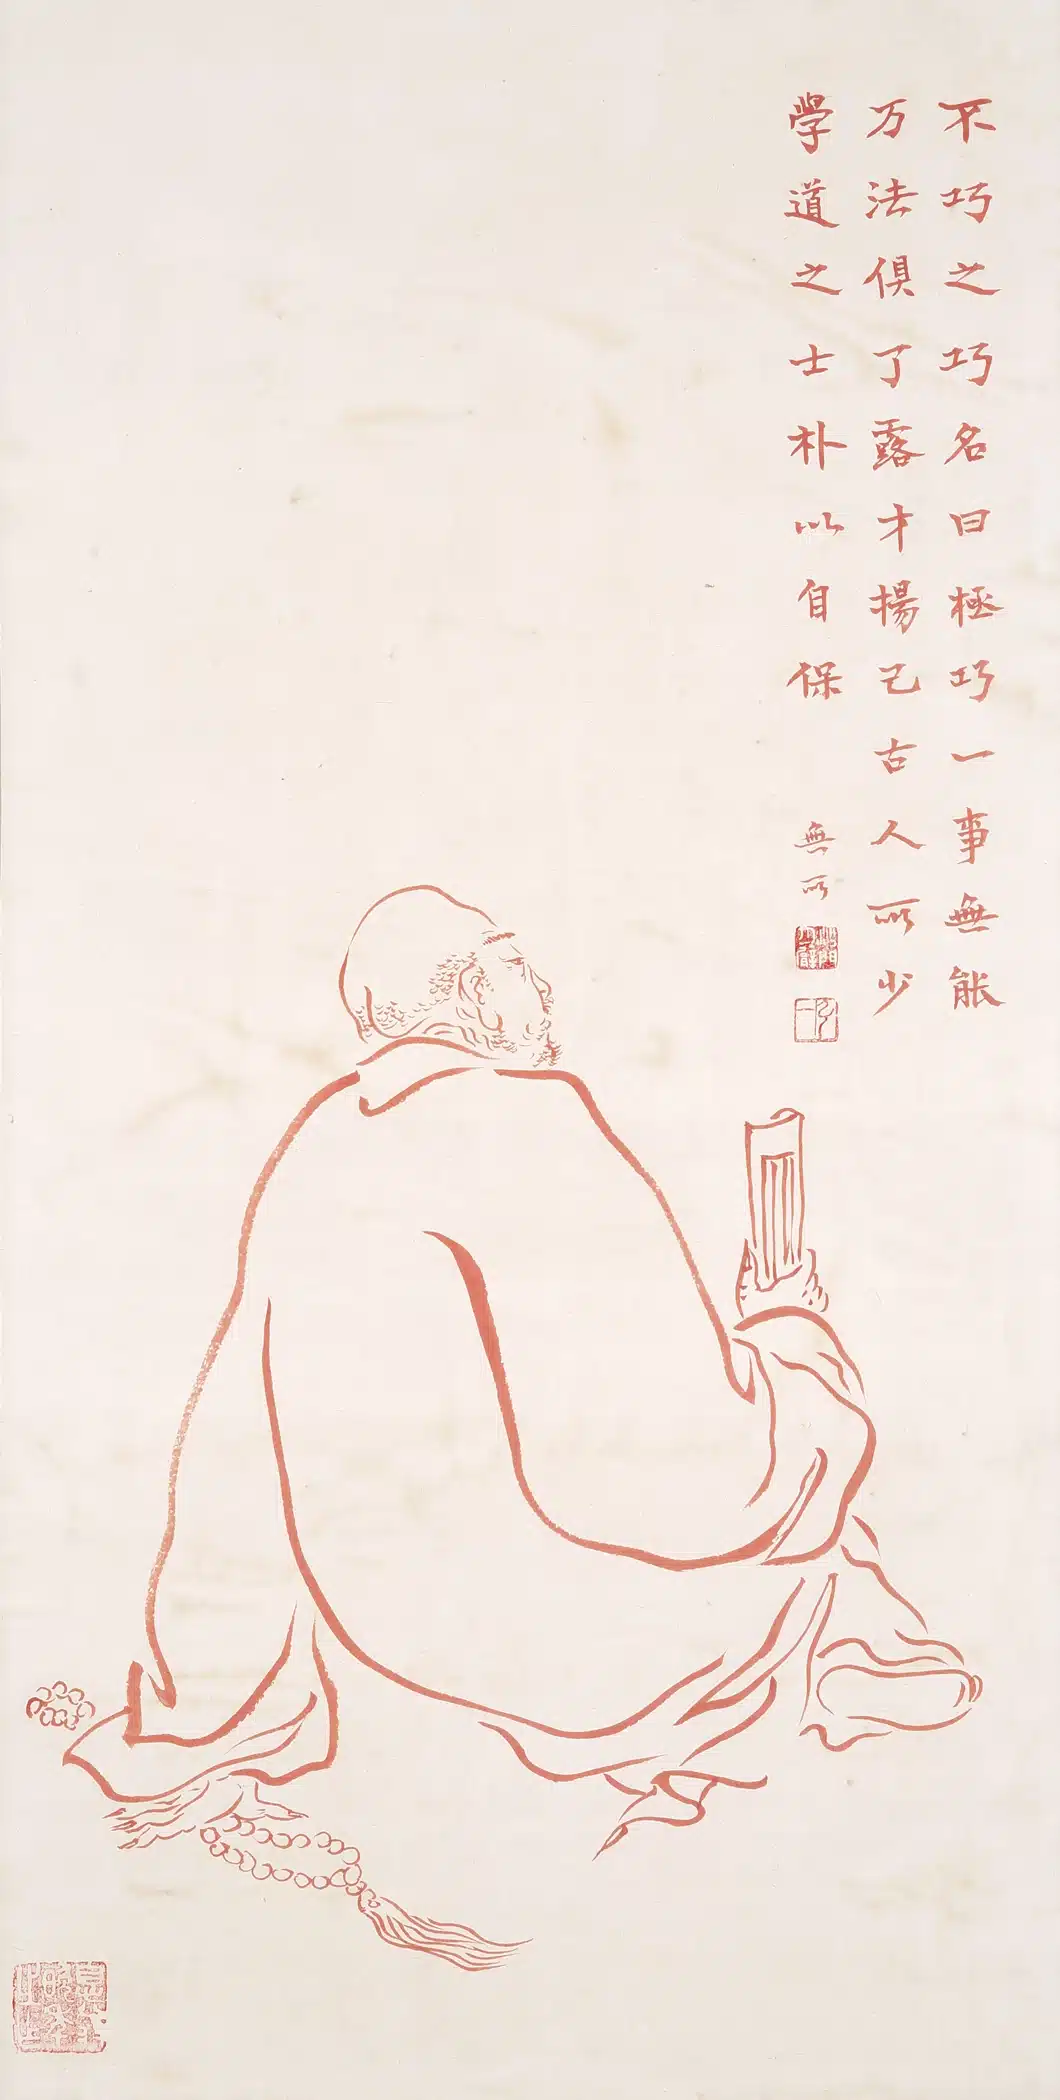 不巧之巧名曰極巧一事無能
万法俱了露才揚己古人所少
學道之士朴以自保
無所